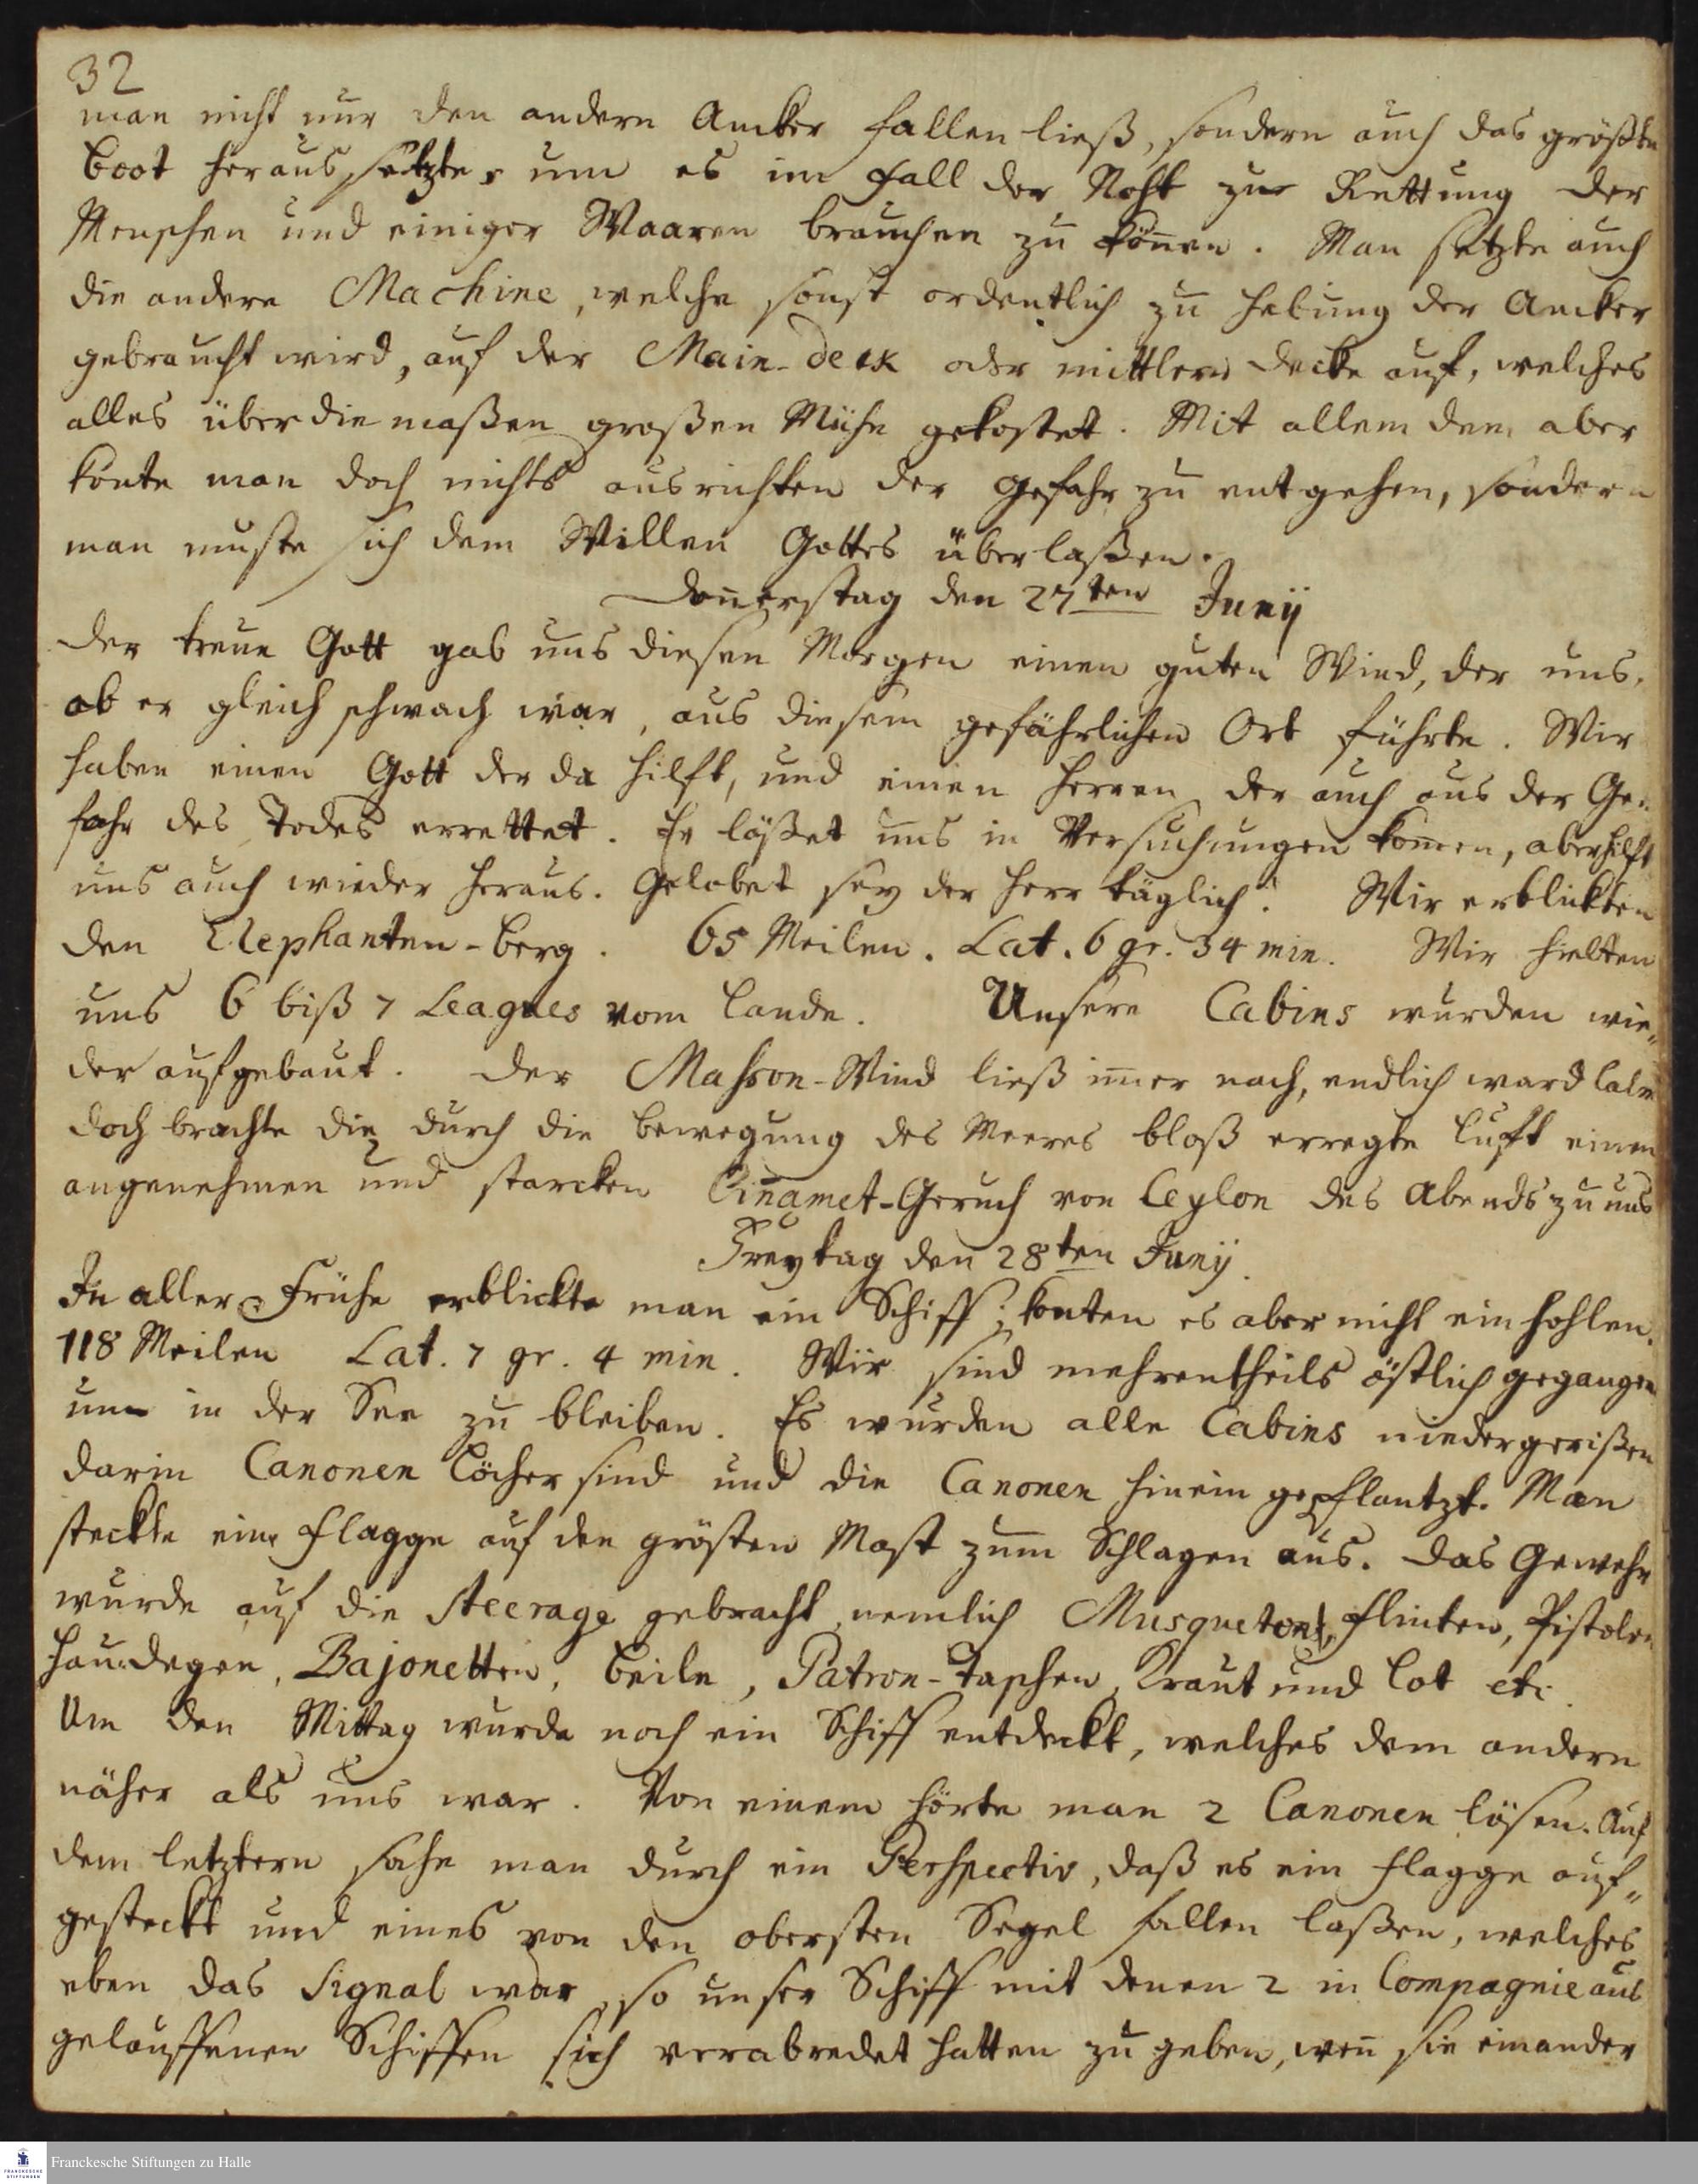 32
man nicht nur den andern Ancker fallen ließ, sondern auch das größte
Boot heraus setzte, um es im Fall der Noht zur Rettung der
Menschen und einiger Waaren brauchen zu kön̄en. Man setzte auch
die andere Machine, welche sonst ordentlich zu Hebung der Ancker
gebraucht wird, auf der Main-deck oder mittlern Decke auf, welches
alles über die maßen großen Mühe gekostet. Mit allem dem aber
konte man doch nichts ausrichten der Gefahr zu entgehen, sondern
man muste sich dem Willen Gottes überlaßen.
Don̄erstag den 27ten Junij
Der treue Gott gab uns diesen Morgen einen guten Wind, der uns,
ob er gleich schwach war, aus diesem gefährlichen Ort führte. Wir
haben einen Gott der da hilft, und einen Herren der auch aus der Ge-
fahr des Todes errettet. Er läßet uns in Versuchungen kom̄en, aber hilft
uns auch wieder heraus. Gelobet sey der Herr täglich! Wir erblickten
den Elephanten-berg. 65 Meilen. Lat. 6 gr. 34 min. Wir hielten
uns 6 biß 7 Leagues vom Lande. Unsere Cabins wurden wie-
der aufgebaut. Der Masson-Wind ließ im̄er nach, endlich ward calm
doch brachte die durch die Bewegung des Meeres bloß erregte Luft einen
angenehmen und starcken Cin̄amet-Geruch von Ceylon des Abends zu uns
Freytag den 28ten Junij.
In aller Frühe erblickte man ein Schiff; konten es aber nicht ein hohlen.
118 Meilen Lat. 7 gr. 4 min. Wir sind mehrentheils östlich gegangen
um in der See zu bleiben. Es wurden alle Cabins niedergerißen
darin Canonen Löcher sind und die Canonen hinein gepflantzt. Man
steckte eine Flagge auf den grösten Mast zum Schlagen aus. Das Gewehr
wurde auf die Steerage gebracht, nemlich Musquetons, Flinten, Pistolen
Haudegen, Bajonetten, Beile, Patron-Taschen, Kraut und Lot etc.
Um den Mittag wurde noch ein Schiff entdeckt, welches dem andern
näher als uns war. Von einem hörte man 2 Canonen lösen. Auf
dem letztern sahe man durch ein Perspectiv, daß es ein Flagge auf-
gesteckt und eines von den obersten Segel fallen laßen, welches
eben das Signal war, so unser Schiff mit denen 2 in Compagnie aus
gelauffenen Schiffen sich verabredet hatten zu geben, wen̄ sie einander
Franckesche Stiftungen zu Halle